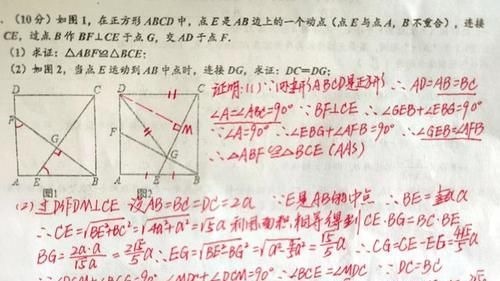 .（10分）如图1，在正方形ABCD中，点E是AB边上的一个动点（点E与点A，B不重合），连接
CE，过点B作BF⊥CE于点G，交AD于点F.
（1）求证：△ABF≌△BCE；
（2）如图2，当点E运动到AB中点时，连接DG，求证：DC=DG；
证明：(1) ∵四边形ABCD是正方形 ∴AD=AB=BC
∠A=∠ABC=90° ∵BF⊥CE ∴∠GEB+∠EBG=90°
∵∠A=90° ∴∠EBG+∠AFB=90° ∴∠GEB=∠AFB
∴△ABF≌△BCE (AAS)
D C
F
G
A E B
图1
D C
M
F
G
A E B
图2
(2) 过D作DM⊥CE 设AB=BC=DC=2a ∵E是AB的中点 ∴BE=½AB=a
∴CE=√BE²+BC²=√4a²+a²=√5a 利用面积相等得到CE·BG=BC·BE
BG=2a·a/√5a=2√5/5a ∴EG=√BE²-BG²=√5/5a ∴CG=CE-EG=4√5/5a
∠MDC+∠DCM=90° ∴∠BCE=∠MDC ∵DC=BC